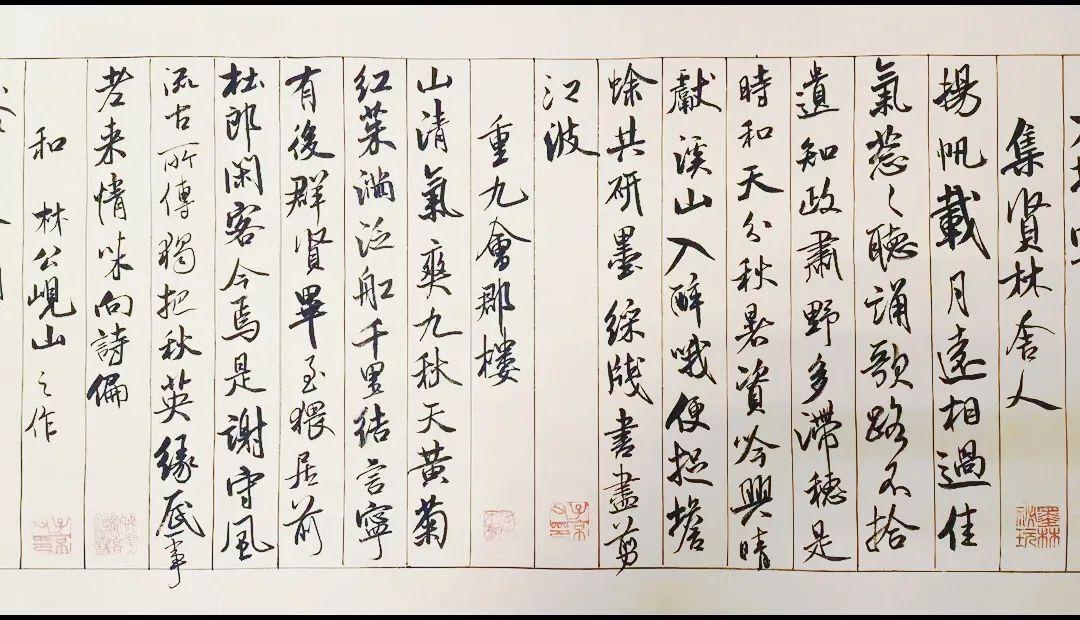 集賢林舍人
揚帆載月遠相過佳
氣蔥々聽誦歌路不拾
遺知政肅野多滯穗是
時和天分秋暑資吟興晴
獻溪山入醉哦便捉蟾
蜍共研墨綵牋書盡剪
江波
重九會郡樓
山清氣爽九秋天黃菊
紅茱滿泛船千里結言寧
有後群賢畢至猥居前
杜郎閑客今焉是謝守風
流古所傳獨把秋英緣底事
老來情味向詩偏
和 林公峴山之作